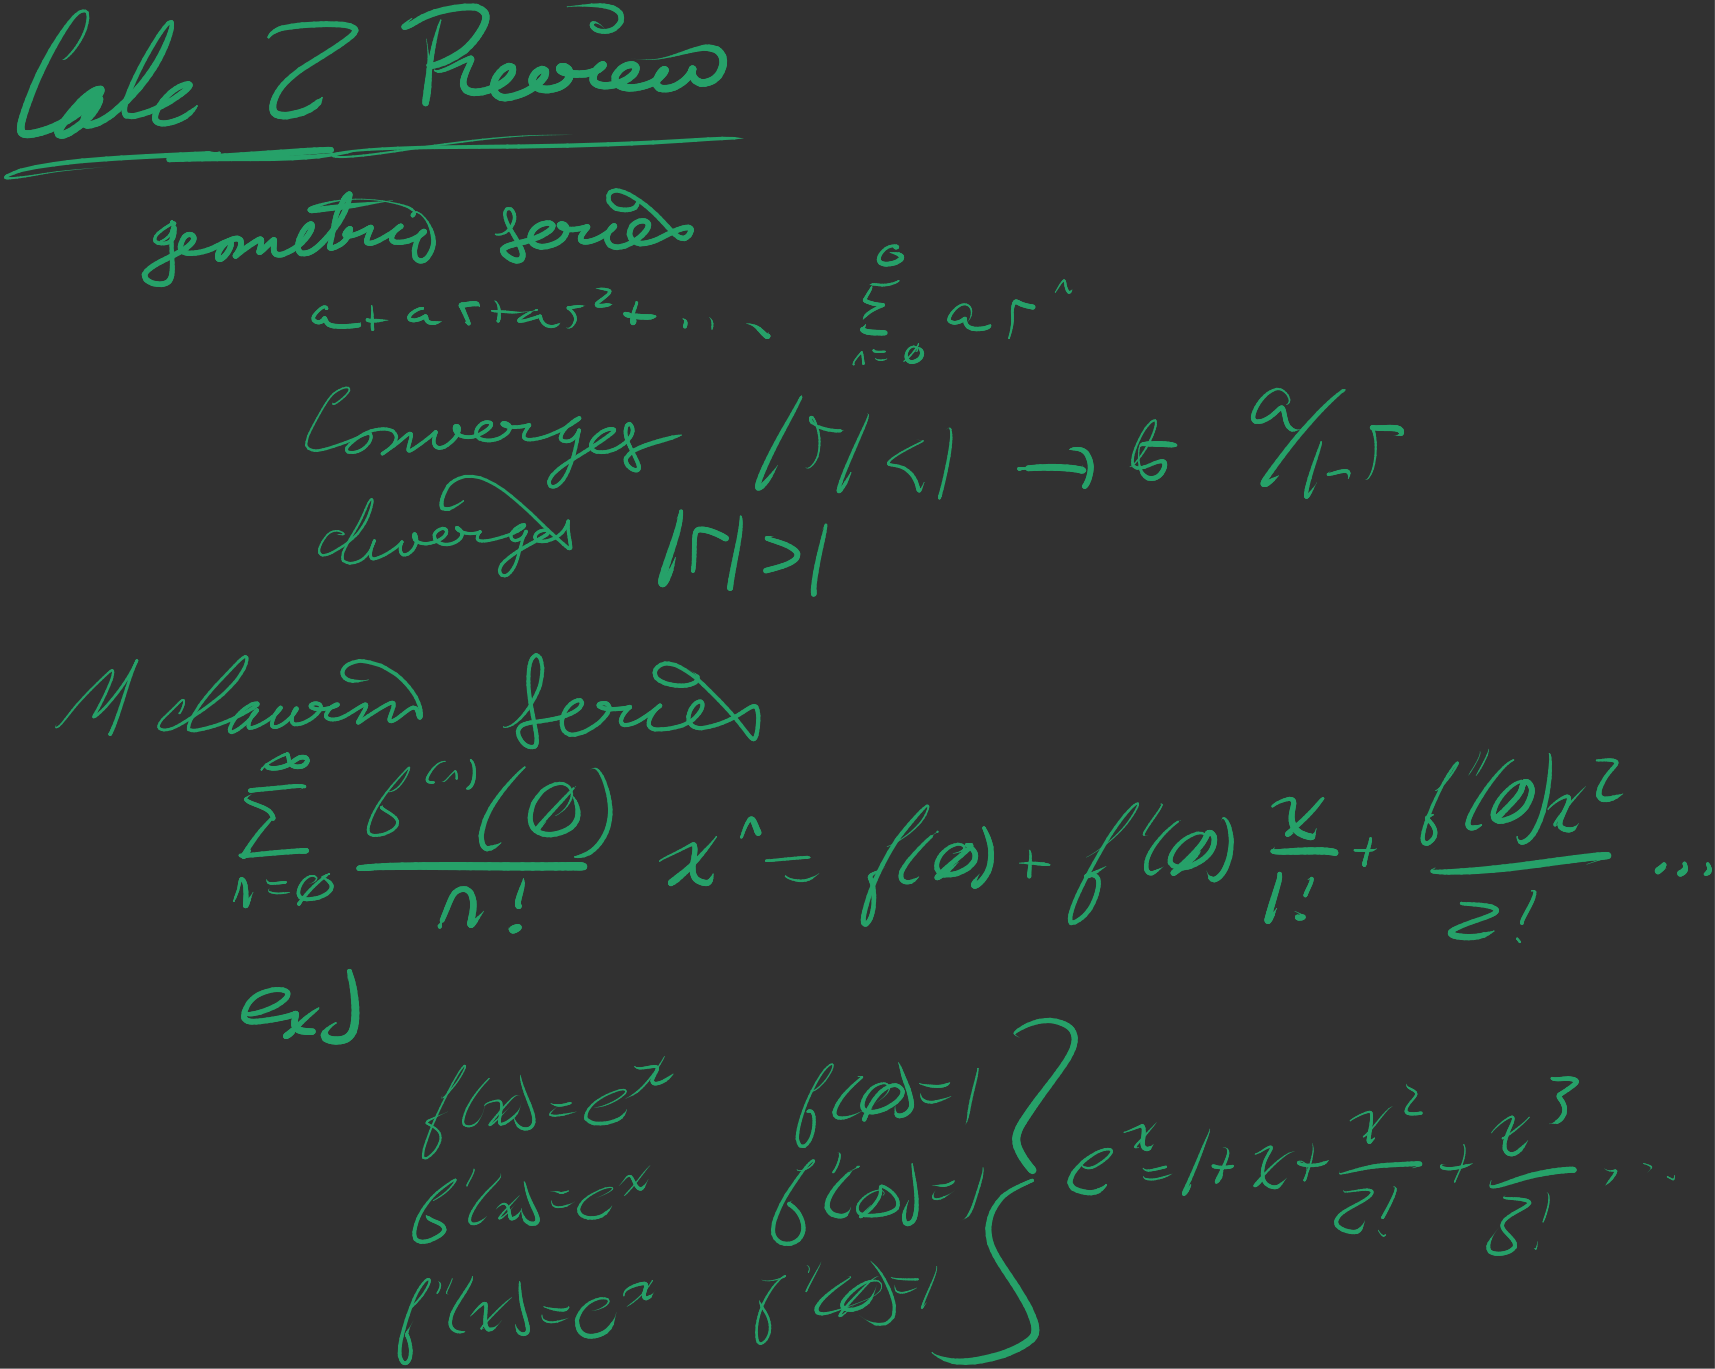 Calc 2 Review
geometric series
a + ar + ar² + ... , ∑_{n=0}^{∞} a r^n
Converges |r| < 1 → to a/1-r
diverges |r| > 1
Mclaurin Series
∑_{n=0}^{∞} f^{(n)}(0)/n! x^n = f(0) + f'(0) x/1! + f''(0)x²/2! ...
ex)
f(x) = e^x f(0) = 1
f'(x) = e^x f'(0) = 1 } e^x = 1 + x + x²/2! + x³/3! ...
f''(x) = e^x f''(0) = 1